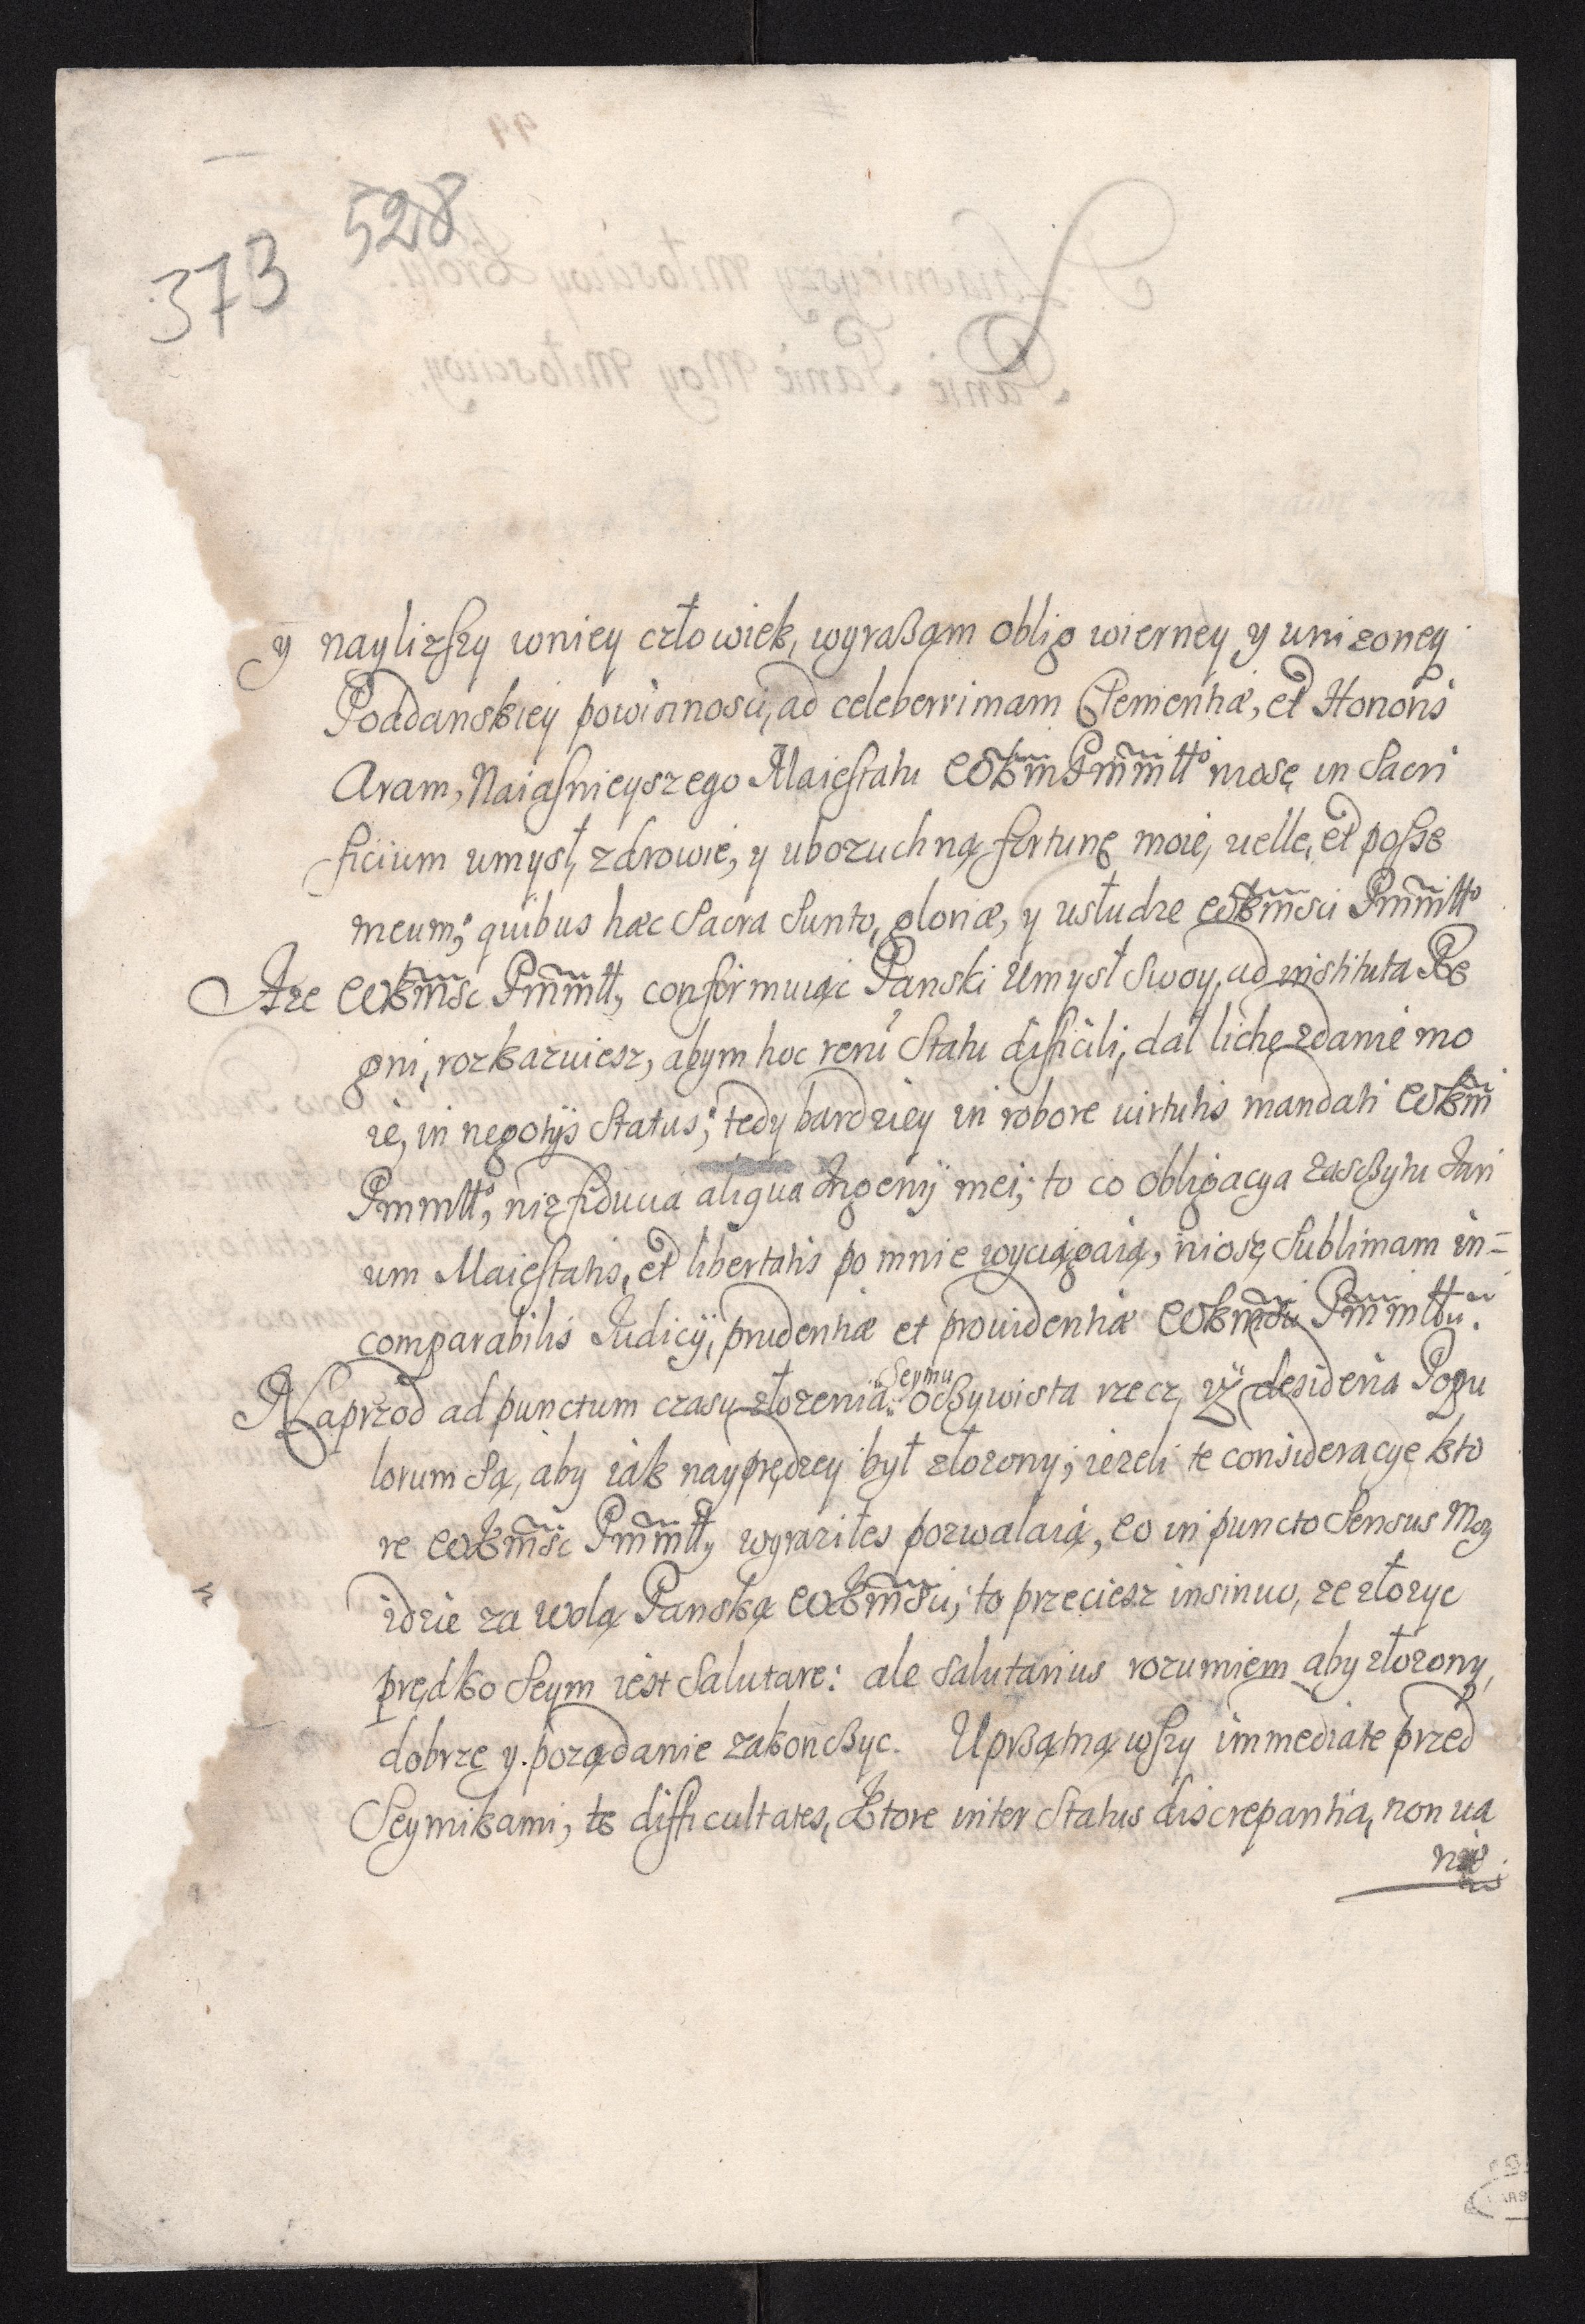 528
373
y naylizszy wniey człowiek, wyraßąm oblig wierney y unizoney
Poddanskiey powinnosci, ad celeberrimam Clementiæ, et Honoris
Aram, Naiasnieyszego Maiestatu WKm Pmmtto niosę in Sacri
ficium umysł, zdrowie, y ubozuchną fortunę moię, velle, et posse
meum; quibus hæc Sacra Sunto, gloriæ, y usłudze WKmsci Pmmtto
Aze WKmsc Pmmtt, conformuiąc Panski Umysł Swoy, ad instituta Re
gni, rozkazuiesz, abym hoc reru Statu difficili, dał liche zdanie mo
ie, in negotijs Status; tedy bardziey in robore virtutis mandati WKm
Pmmtto, niz fiducia aliqua Ingenij mei; to co obligacya zasczßytu Iuri
um Maiestatis, et libertatis po mnie wyciągaią, niosę Sublimam in=
comparabilis Iudicij, prudentiæ et providentiæ WKmsci Pmmttu.
Naprzod ad punctum czasu złozenia Seymu ocßywista rzecz, yż desideria Popu
lorum Są, aby iak nayprędzey był złozony; iezeli te consideracye kto
re WKmsc Pmmtt, wyraziłes pozwalaią, co in puncto Sensus Moy
idzie za wolą Panską WKmSci; to przeciesz insinuo, ze złozyc
prędko Seym iest Salutare: ale Salutarius rozumiem aby złozony,
dobrze y poządanie zakoncßyc. Uprßątnąwszy immediate przed
Seymikami, te difficultates, ktore inter Status discrepantia, non va